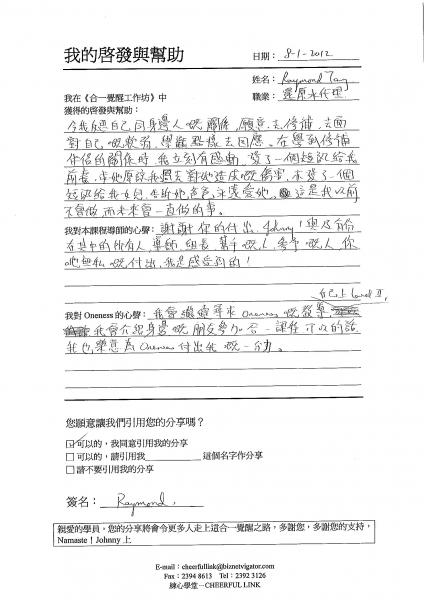 我的啓發與幫助
日期: 8-1-2012
姓名: Raymond Tang
職業: 還原米代理
我在《合一覺醒工作坊》中
獲得的啓發與幫助:
令我反思自己同身邊人嘅關係,願意去修補,去面
對自己嘅軟弱,學識點樣去因應。在學到修補
伴侶的關係時,我立刻有感動,發了一個短訊給我
前妻,求她原諒我過去對她造成嘅傷害,亦發了一個
短訊給我女兒,告訴她爸爸永遠愛她,這是我以前
不會做而未來會一直做的事。
我對本課程導師的心聲: 謝謝你的付出,Johnny!與及有份
在其中的所有人,導師,組長,幫手嘅人,參予嘅人,你
哋無私嘅付出,我是感受到的!
自己上 Level II,
我對 Oneness 的心聲: 我會繼續尋求 Oneness 嘅發展,
我會介紹身邊嘅朋友參加合一課程,可以的話
我也樂意為 Oneness 付出我嘅一分力。
您願意讓我們引用您的分享嗎?
☑可以的,我同意引用我的分享
□可以的,請引用我__________這個名字作分享
□請不要引用我的分享
簽名: Raymond,
親愛的學員,您的分享將會令更多人走上這合一覺醒之路,多謝您,多謝您的支持,
Namaste!Johnny 上
E-mail:cheerfullink@biznetvigator.com
Fax:2394 8613 Tel:2392 3126
練心學堂－CHEERFUL LINK